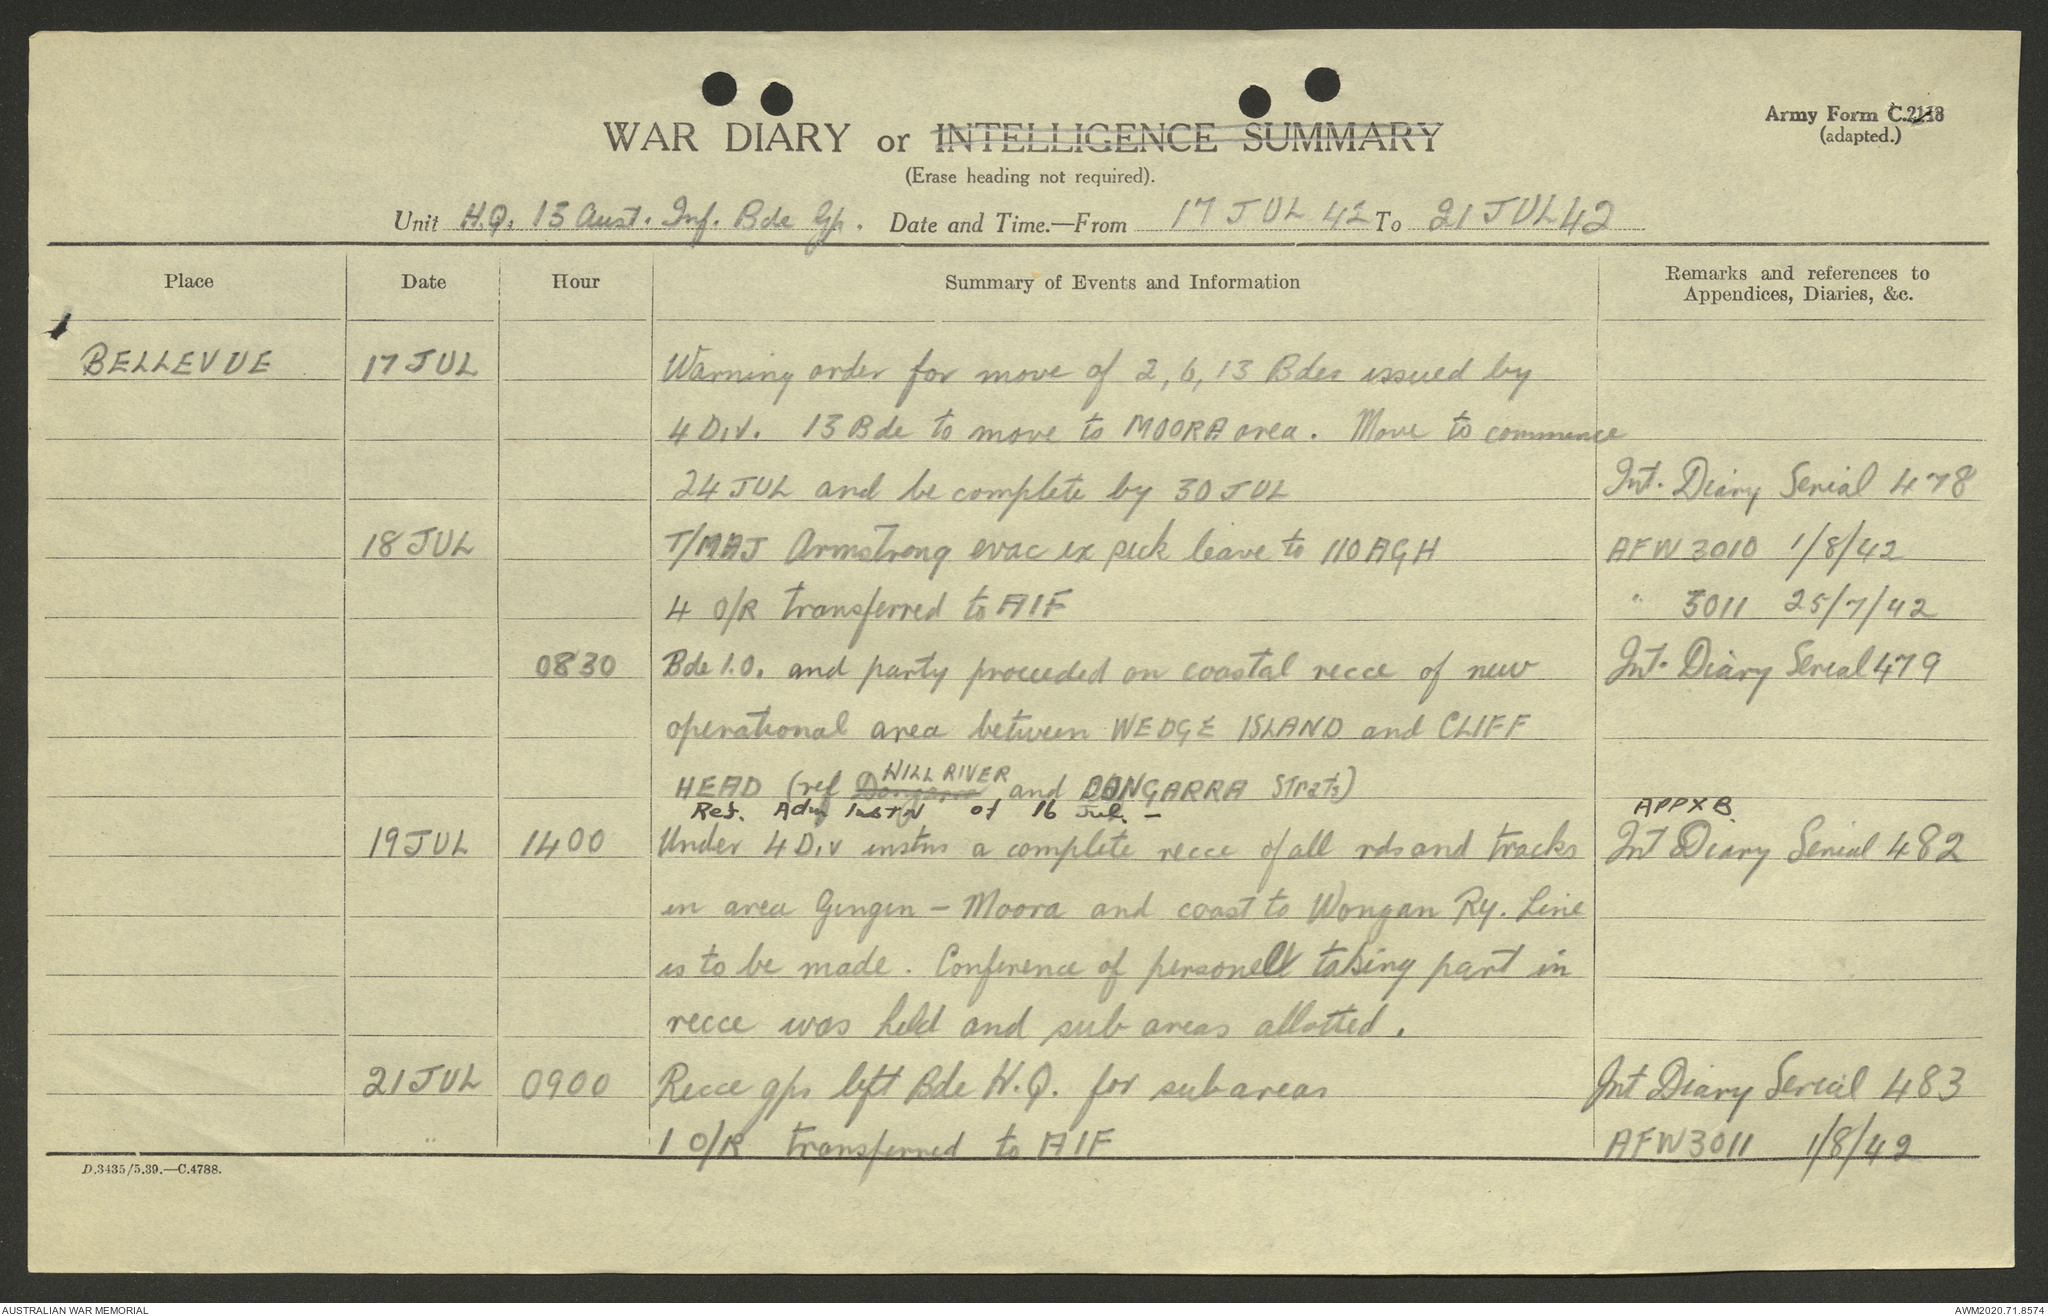 WAR DIARY or INTELLIGENCE SUMMARY
Army Form C.2118
(adapted.)
(Erase heading not required).
Unit H.Q. 13 Aust. Inf. Bde Gp. Date and Time.—From 17 JUL 42 To 21 JUL 42
Place Date Hour Summary of Events and Information Remarks and references to
Appendices, Diaries, &c.
BELLEVUE 17 JUL Warning order for move of 2, 6, 13 Bdes issued by
4 Div. 13 Bde to move to MOORA area. Move to commence
24 JUL and be complete by 30 JUL Int. Diary Serial 478
18 JUL T/MAJ Armstrong evac ex sick leave to 110 AGH AFW 3010 1/8/42
4 O/R transferred to AIF " 3011 25/7/42
0830 Bde I.O. and party proceeded on coastal recce of new Int. Diary Serial 479
operational area between WEDGE ISLAND and CLIFF
HEAD (ref Dongarra HILL RIVER and DONGARRA Strats)
Ref. Adm Instn of 16 Jul. — APPX B.
19 JUL 1400 Under 4 Div instns a complete recce of all rds and tracks Int Diary Serial 482
in area Gingin - Moora and coast to Wongan Ry. Line
is to be made. Conference of personell taking part in
recce was held and sub areas allotted.
21 JUL 0900 Recce gps left Bde H.Q. for subareas Int Diary Serial 483
" 1 O/R transferred to AIF AFW 3011 1/8/42
D.3435/5.39.—C.4788.
AUSTRALIAN WAR MEMORIAL AWM2020.71.8574